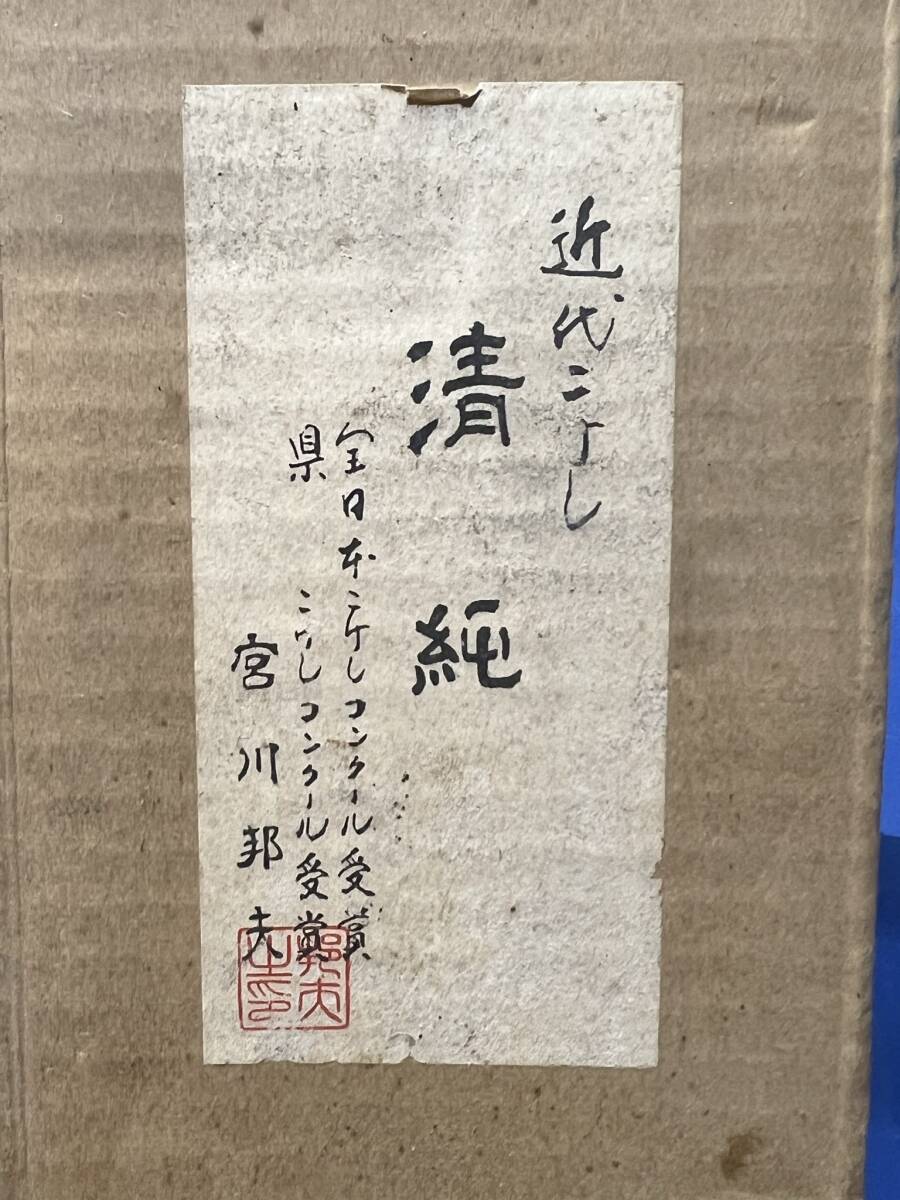 近代こけし
清純
全日本こけしコンクール受賞
県こけしコンクール受賞
宮川邦夫
邦夫之印